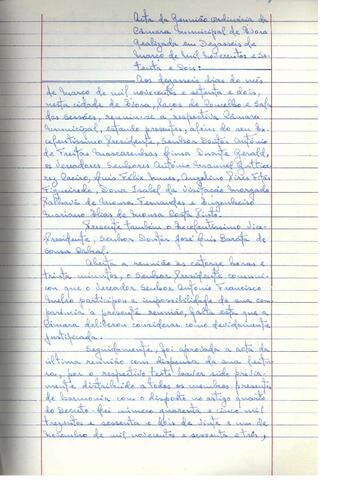 Acta da Reunião ordinária da
Câmara Municipal de Évora
realizada em Dezasseis de
Março de Mil Novecentos e Se-
tenta e Dois:
Aos dezasseis dias do mês
de Março de mil novecentos e setenta e dois,
nesta cidade de Évora, Paços do Concelho e Sala
das Sessões, reuniu-se a respectiva Câmara
Municipal, estando presentes, além do seu Ex-
celentíssimo Presidente, Senhor Doutor António
de Freitas Mascarenhas Gima Duarte Geraldo,
os Vereadores Senhores António Manuel Gutier-
rez Caeiro, Luís Félix Nunes, Angelino Pires Fitas
Figueiredo, Dona Isabel da Visitação Morgado
de Moura Fernandes e Engenheiro
Mariano Elias de Moura Costa Pinto.
Presente também o Excelentíssimo Vice-
Presidente, Senhor Doutor José Luís Barata de
Sousa Cabral.
Aberta a reunião às catorze horas e
trinta minutos, o Senhor Presidente comuni-
cou que o Vereador Senhor António Francisco
participou a impossibilidade da sua com-
parência à presente reunião, falta esta que a
Câmara deliberou considerar como devidamente
justificada.
Seguidamente, foi aprovada a acta da
última reunião com dispensa da sua leitu-
ra, por o respectivo texto haver sido prévia-
mente distribuído a todos os membros presentes
de harmonia com o disposto no artigo quarto
do Decreto-Lei número quarenta e cinco mil
trezentos e sessenta e dois de vinte e um de
Novembro de mil novecentos e sessenta e três,